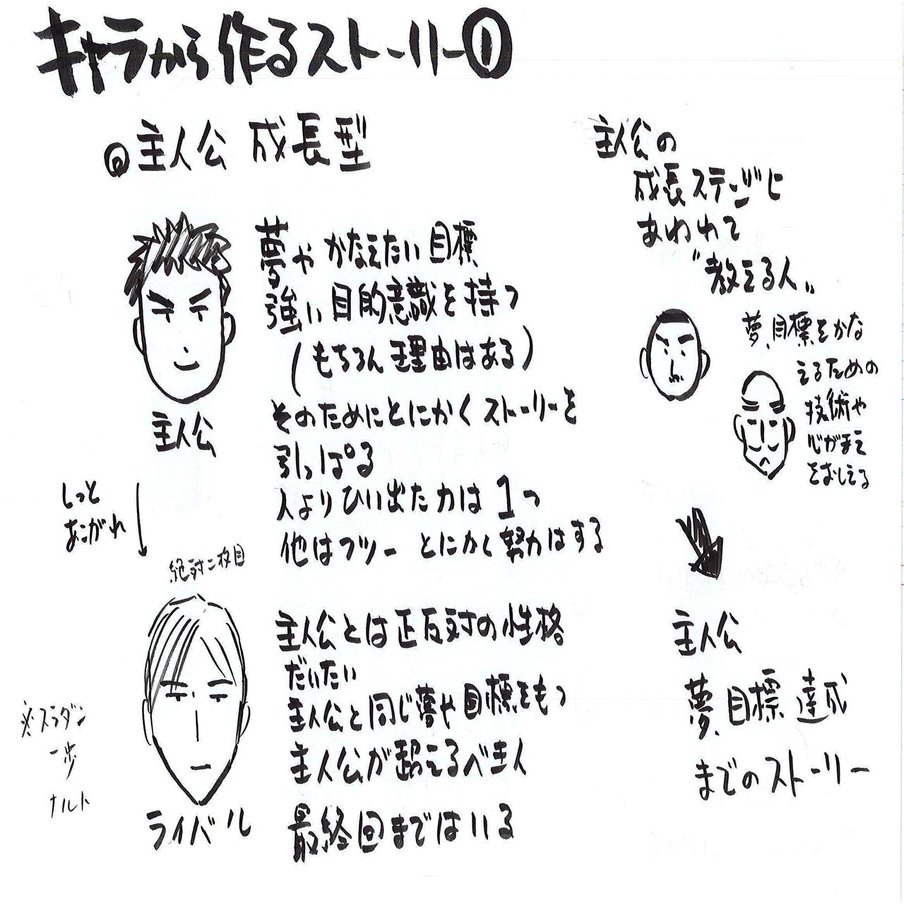 キャラから作るストーリー①
◎主人公 成長型
夢やかなえたい目標
強い目的意識を持つ
(もちろん理由はある)
主人公
そのためにとにかくストーリーを
引っぱる
人よりひい出た力は1つ
他はフツー とにかく努力はする
しっと
あこがれ
絶対二枚目
主人公とは正反対の性格
だいたい
主人公と同じ夢や目標をもつ
主人公が超えるべき人
ライバル
最終回まではいる
※スラダン
一歩
ナルト
主人公の
成長ステージに
あわせて
"教える人"
夢、目標をかな
えるための
技術や
心がまえ
をおしえる
主人公
夢、目標達成
までのストーリー